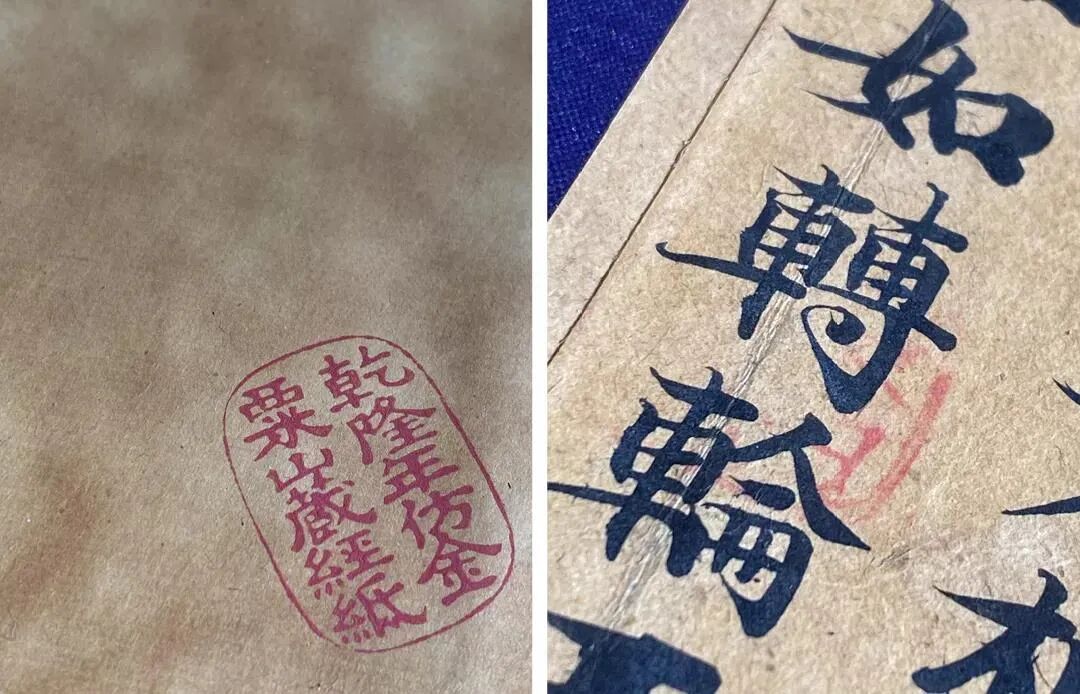 乾隆年仿金
粟山藏經紙
如轉輪